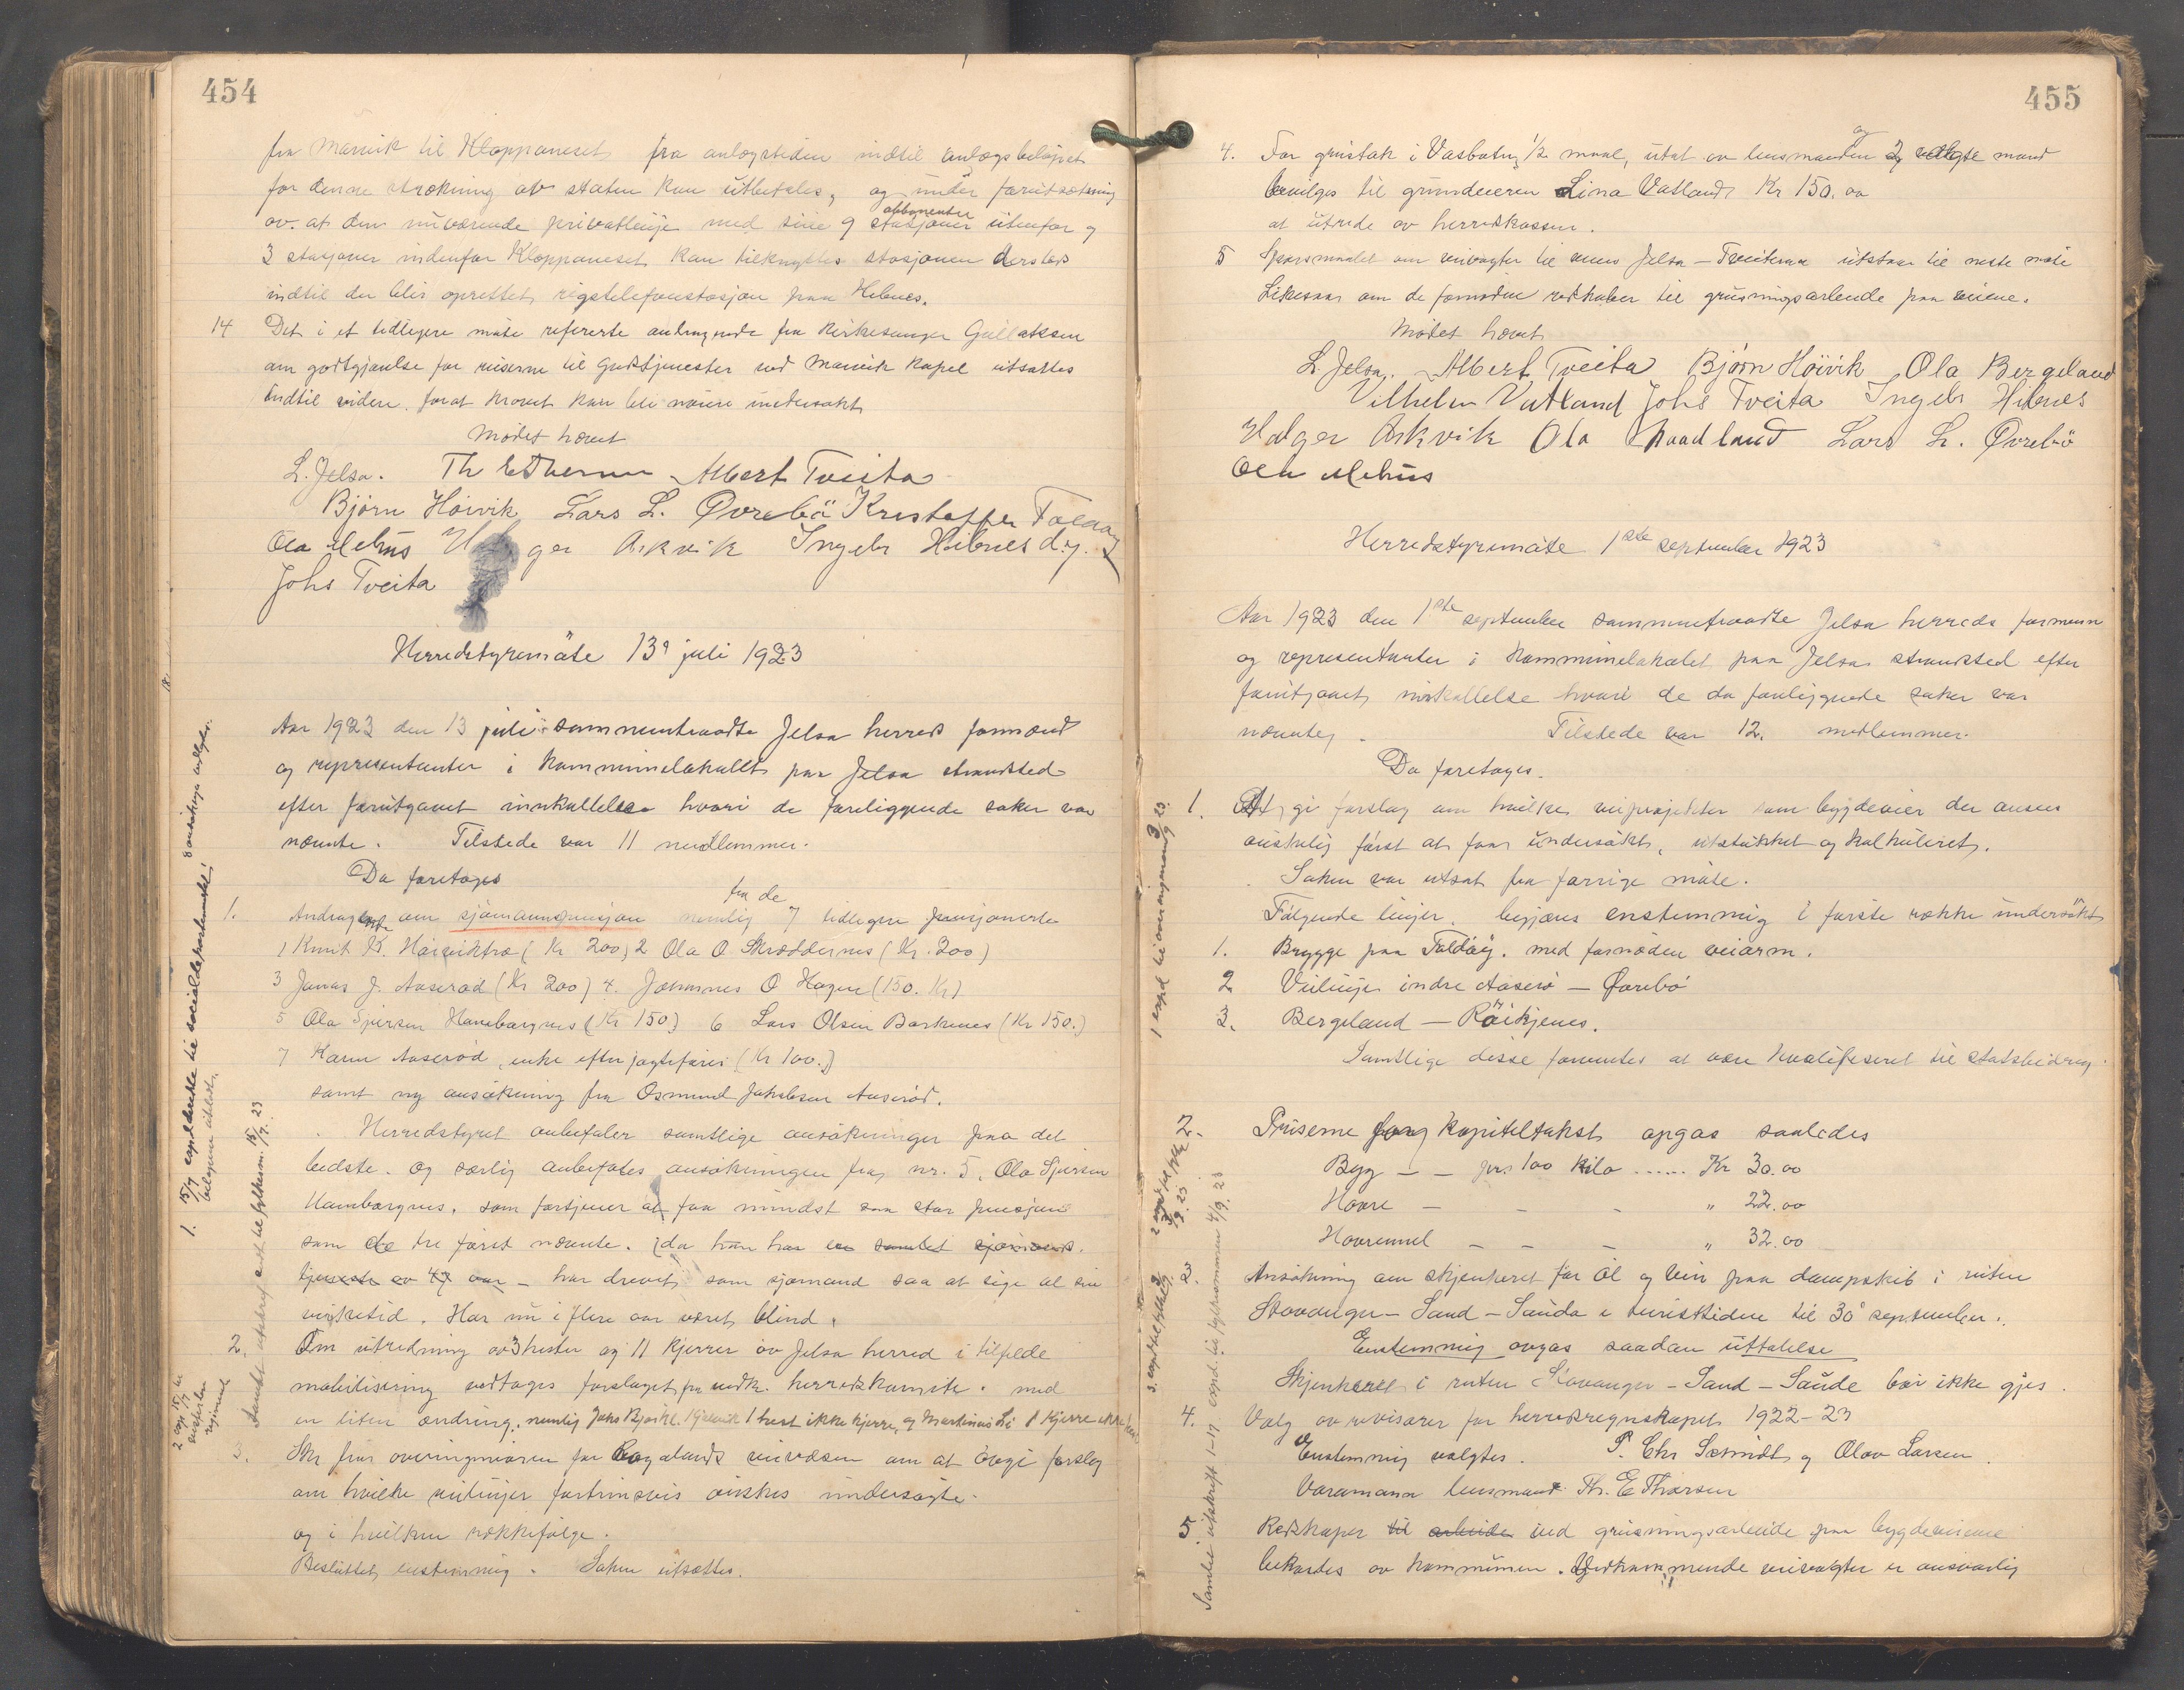 454
fra Marvik til Kloppaneset fra anlægstiden indtil anlægsbeløpet
for denne strækning av staten kan utbetales, og under forutsætning
av at den nuværende privatlinje med sine 9 stasjoner abbonenter utenfor og
3 stasjoner indenfor Kloppaneset kan tilknyttes stasjonen dersteds
indtil der blir oprettet rigstelefonstasjon paa Hebnes.
14 Det i et tidligere møte refererte andragende fra kirkesanger Gullaksen
om godtgjørelse for reiserne til gudstjenester ved Marvik kapel utsattes
indtil videre forat kravet kan bli nøiere undersøkt
Mødet hævet
L. Jelsa. Th E Thorsen Albert Tveita
Bjørn Høivik Lars L. Øvrebö Kristoffer Foldøy
Ola Mehus Holger Askvik Ingebr Hebnes d.y.
Johs Tveita
Herredstyremøte 13de juli 1923
Aar 1923 den 13 juli sammentraadte Jelsa herreds formænd
og representanter i kommunelokallet paa Jelsa strandsted
efter forutgaaet innkallelse hvori de foreliggende saker var
nævnte. Tilstede var 11 medlemmer.
Da foretoges
1. Andragende om sjømannspensjon nemlig fra de 7 tidligere pensjonerte
1 Knut K. Høiviktræ (Kr. 200) 2 Ola O. Skroddernes (Kr. 200)
3 Jonas J. Aaserød (Kr 200) 4. Johannes O Hagen (150. Kr)
5 Ola Sjursen Hambargnes (Kr 150) 6 Lars Olsen Barkenes (Kr 150.)
7 Karen Aaserød, enke efter jagtefører (Kr 100.)
samt ny ansøkning fra Osmund Jakobsen Aaserød.
Herredstyret anbefaler samtlige ansøkninger paa det
bedste. og særlig anbefales ansøkningen fra nr. 5. Ola Sjursen
Hambargnes. som fortjener at faa mindst saa stor pensjon
som de tre først nævnte. da han har en samlet sjømands
tjeneste av 47 aar – har drevet som sjømand saa at sige al sin
virketid. Har nu i flere aar været blind.
2. Om utredning av 3 hester og 11 kjerrer av Jelsa herred i tilfelde
mobilisering vedtages forslaget fra vedk. herredskomite. med
en liten ændring. nemlig Johs Bjørkl. Kjølvik 1 hest ikke kjerre, og Martinus Li 1 kjerre ikke hest
3. Skr fra overingeniøren for Rogalands veivæsen om at avgi forslag
om hvilke veilinjer fortrinsvis ønskes undersøgte.
og i hvilken rækkefølge.
Besluttet enstemmig. Saken utsættes.
1. 15/7 expl. sendte til socialdepartementet! 8 ansøkninger vedlagt.
bilagene utlaant.
Samlet utskrift sendt til fylkesm. 15/7. 23
2 exp 15/7 til
regiment
455
4. For grustak i Vasbotn, 1/2 maal, utat av lensmanden og 2 valgte mænd
bevilges til grundeieren Lina Vatland Kr 150.00
at utrede av herredskassen.
5 Spørsmaalet om veivogter til veien Jelsa – Tveiteraa utstaar til neste møte
Likesaa om de fornødne redskaber til grusningsarbeide paa veiene.
Mødet hævet
L. Jelsa. Albert Tveita Bjørn Höivik Ola Bergeland
Vilhelm Vatland Johs Tveita Ingebr Hebnes
Holger Askvik Ola Haadland Lars L. Øvrebö
Ola Mehus
Herredstyremøte 1ste september 1923
Aar 1923 den 1ste september sammentraadte Jelsa herreds formenn
og representanter i kommunelokalet paa Jelsa strandsted efter
forutgaaet innkallelse hvori de da foreliggende saker var
nævnte. Tilstede var 12. medlemmer.
Da foretoges.
1. At gi forslag om hvilke veiprosjekter som bygdeveier der ansees
ønskelig først at faa undersøkt, utstukket og kalkuleret.
Saken var utsat fra forrige møte.
Følgende linjer begjæres enstemmig i første række undersøkt
1. Brygge paa Foldøy. med fornøden veiarm.
2 Veilinje indre Aaserø – Øvrebø
3. Bergeland – Röikjenes.
Samtlige disse formentes at være kvalifiseret til statsbidrag.
2. Priserne for kapiteltakst opgas saaledes
Byg – – pr. 100 kilo ...... Kr 30.00
Havre – – – " 22.00
Havremel – – – " 32.00
3. Ansøkning om skjenkeret for øl og vin paa dampskib i ruten
Stavanger – Sand – Sauda i turisttiden til 30' september.
Enstemmig avgas saadan uttalelse
Skjenkerett i ruten Stavanger – Sand – Saude bør ikke gjes.
4. Valg av revisorer for herredsregnskapet 1922–23
Enstemmig valgtes. P. Chr Schmidt og Olav Larsen.
Varamann lensmand Th. E Thorsen
5. Redskaper til arbeide ved grusningsarbeide paa bygdeveiene
bekostes av kommunen. Vedkommende veivogter er ansvarlig
1 expl til overingeniøren 3/9 23.
Samlet utskrift 1–17 exped. til fylkesmannen 4/9. 23